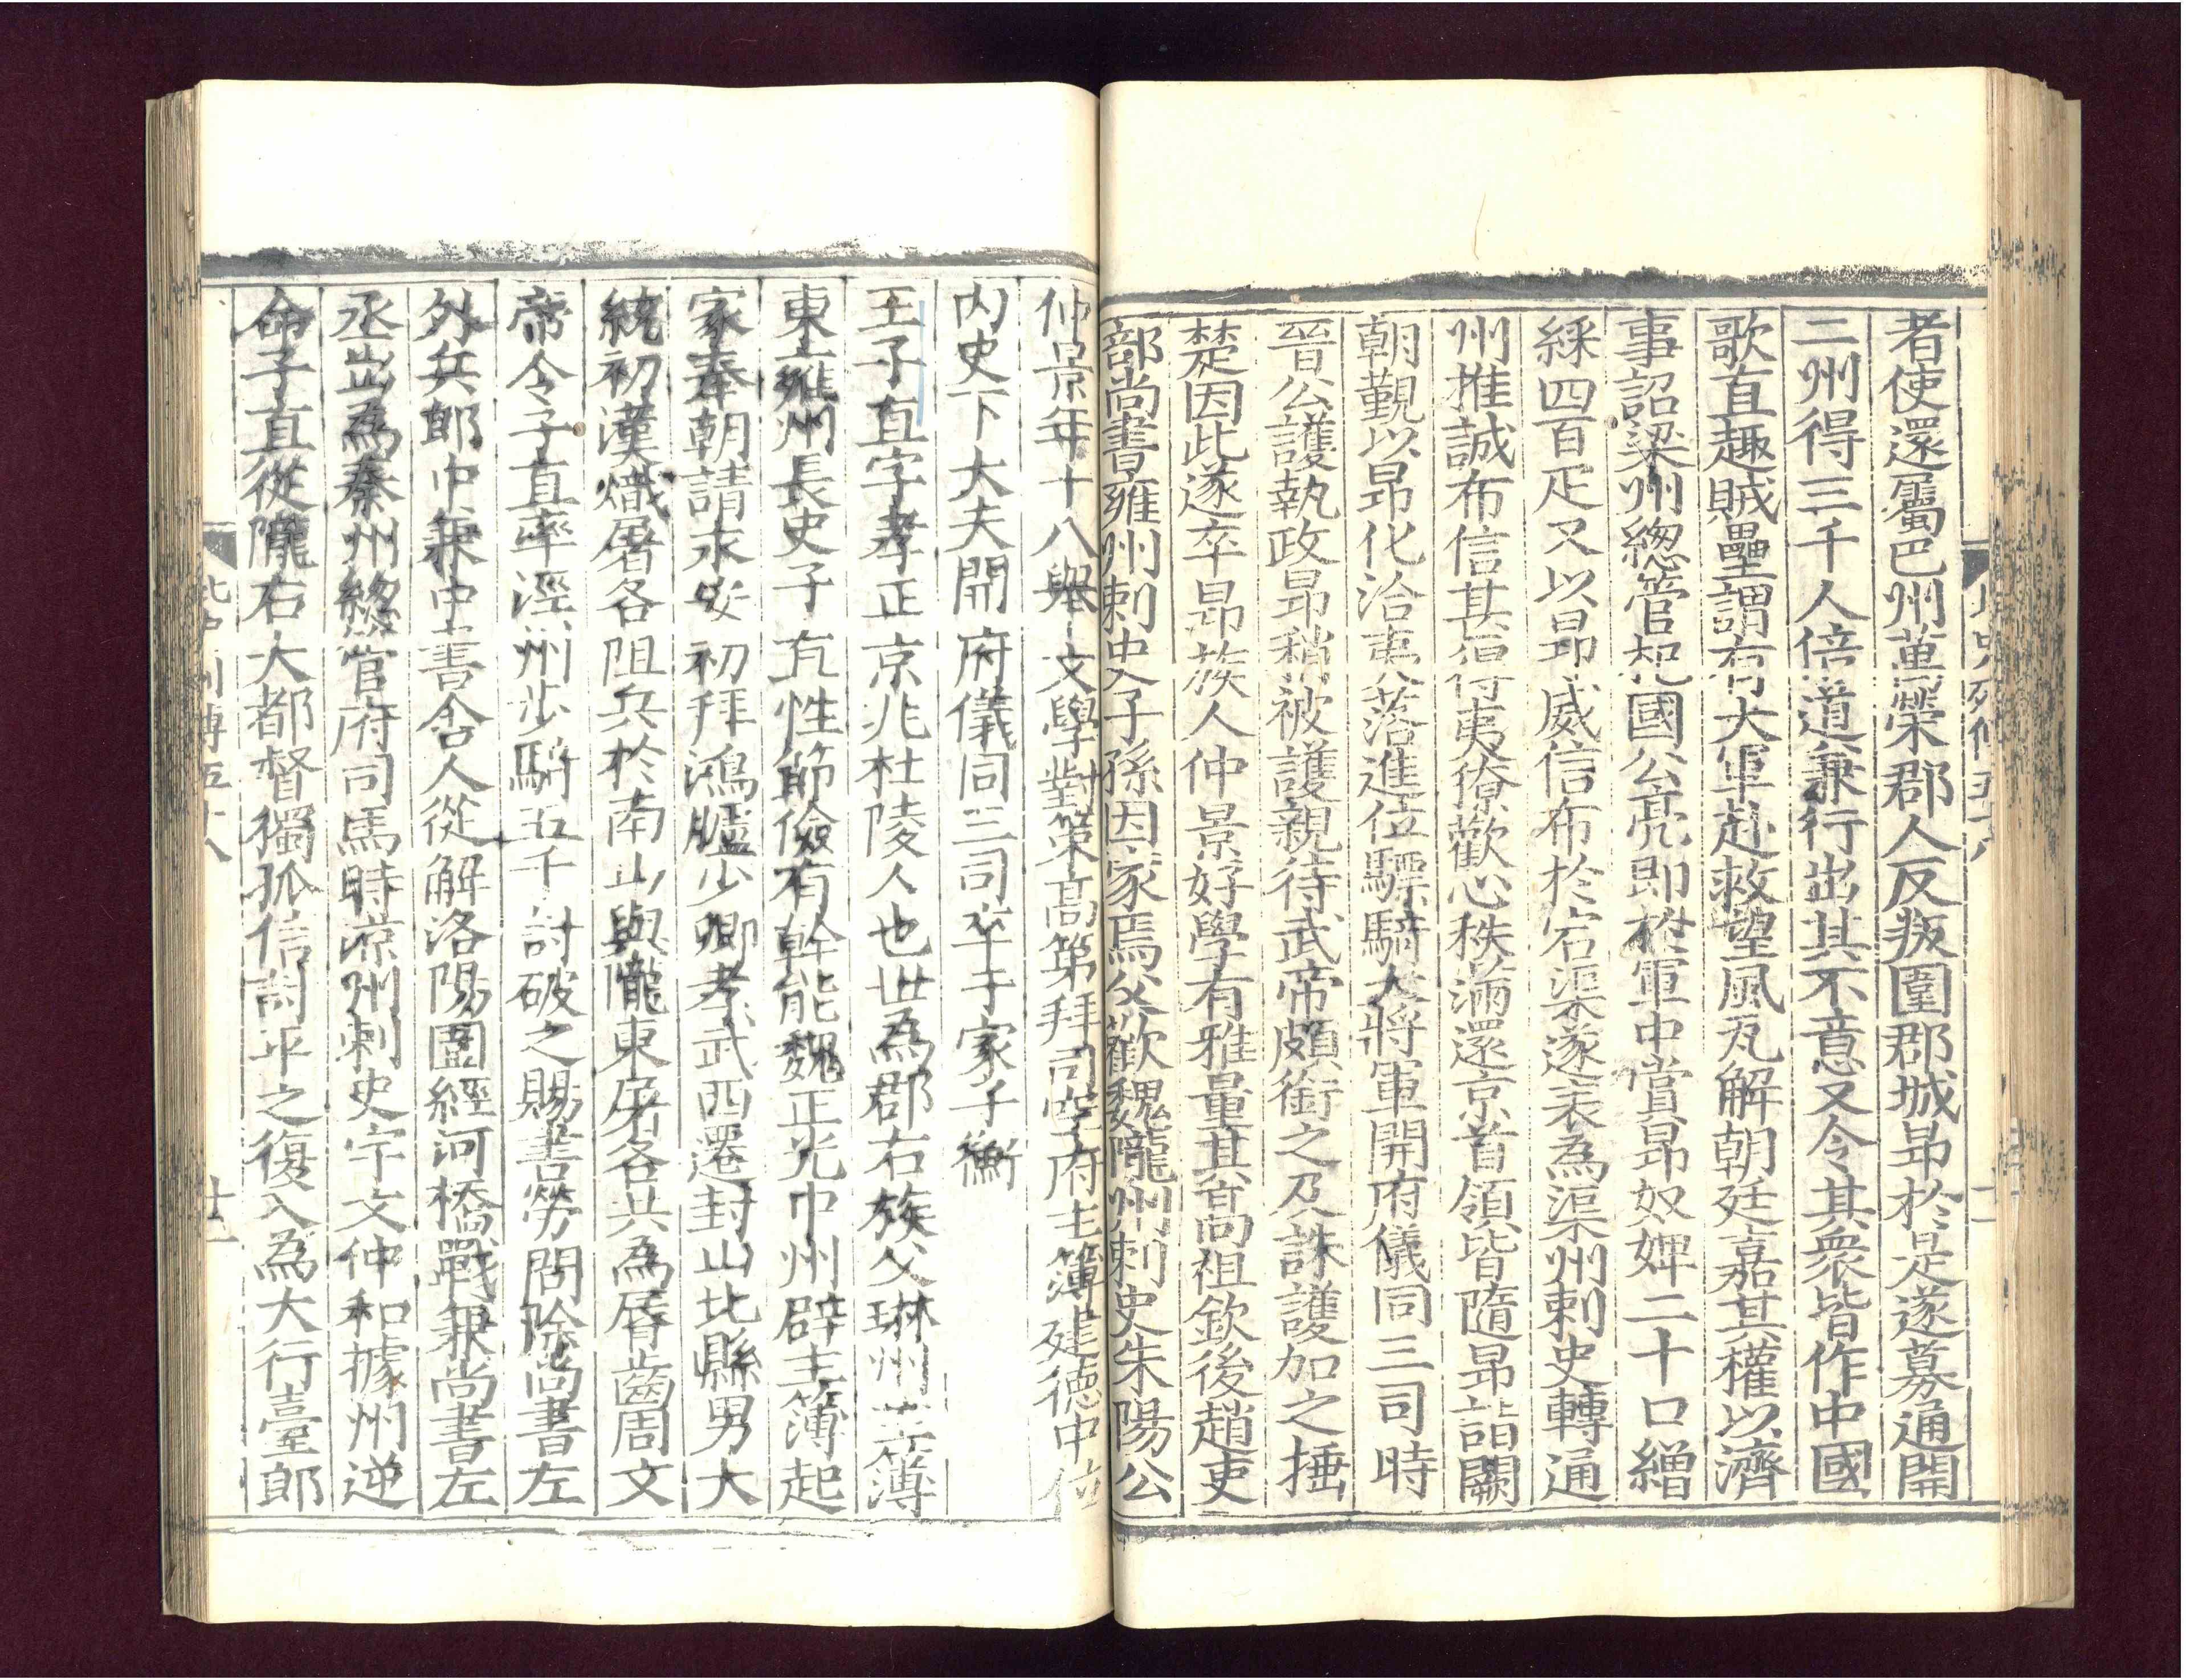 者使還屬巴州萬榮郡人反叛圍郡城昂於是遂募通開
二州得三千人倍道兼行出其不意又令其衆皆作中國
歌直趣賊壘謂有大軍赴救望風瓦解朝廷嘉其權以濟
事詔梁州緫管杞國公亮即於軍中賞昂奴婢二十口繒
綵四百疋又以昂威信布於宕渠遂表為渠州刺史轉通
州推誠布信其得夷獠歡心秩滿還京首領皆隨昂詣闕
朝覲以昂化洽夷落進位驃騎大將軍開府儀同三司時
晉公護執政昂稍被護親待武帝頗銜之及誅護加之捶
楚因此遂卒昂族人仲景好學有雅量其高祖欽後趙吏
部尚書雍州刺史子孫因家焉父歡魏隴州刺史朱陽公
仲景年十八舉文學對策高第拜司空府主簿建德中位
内史下大夫開府儀同三司卒于家子衡
王子直字孝正京兆杜陵人也世為郡右族父琳州主簿
東雍州長史子直性節儉有幹能魏正光中州辟主簿起
家奉朝請永安初拜鴻臚少卿孝武西遷封山北縣男大
統初漢熾屠各阻兵於南山與隴東屠各共為脣齒周文
帝令子直率涇州步騎五千討破之賜書勞問除尚書左
外兵郎中兼中書舍人從解洛陽圍經河橋戰兼尚書左
丞出為秦州緫管府司馬時涼州刺史宇文仲和據州逆
命子直從隴右大都督獨孤信討平之復入為大行臺郎
北史列傳五十八
廿一